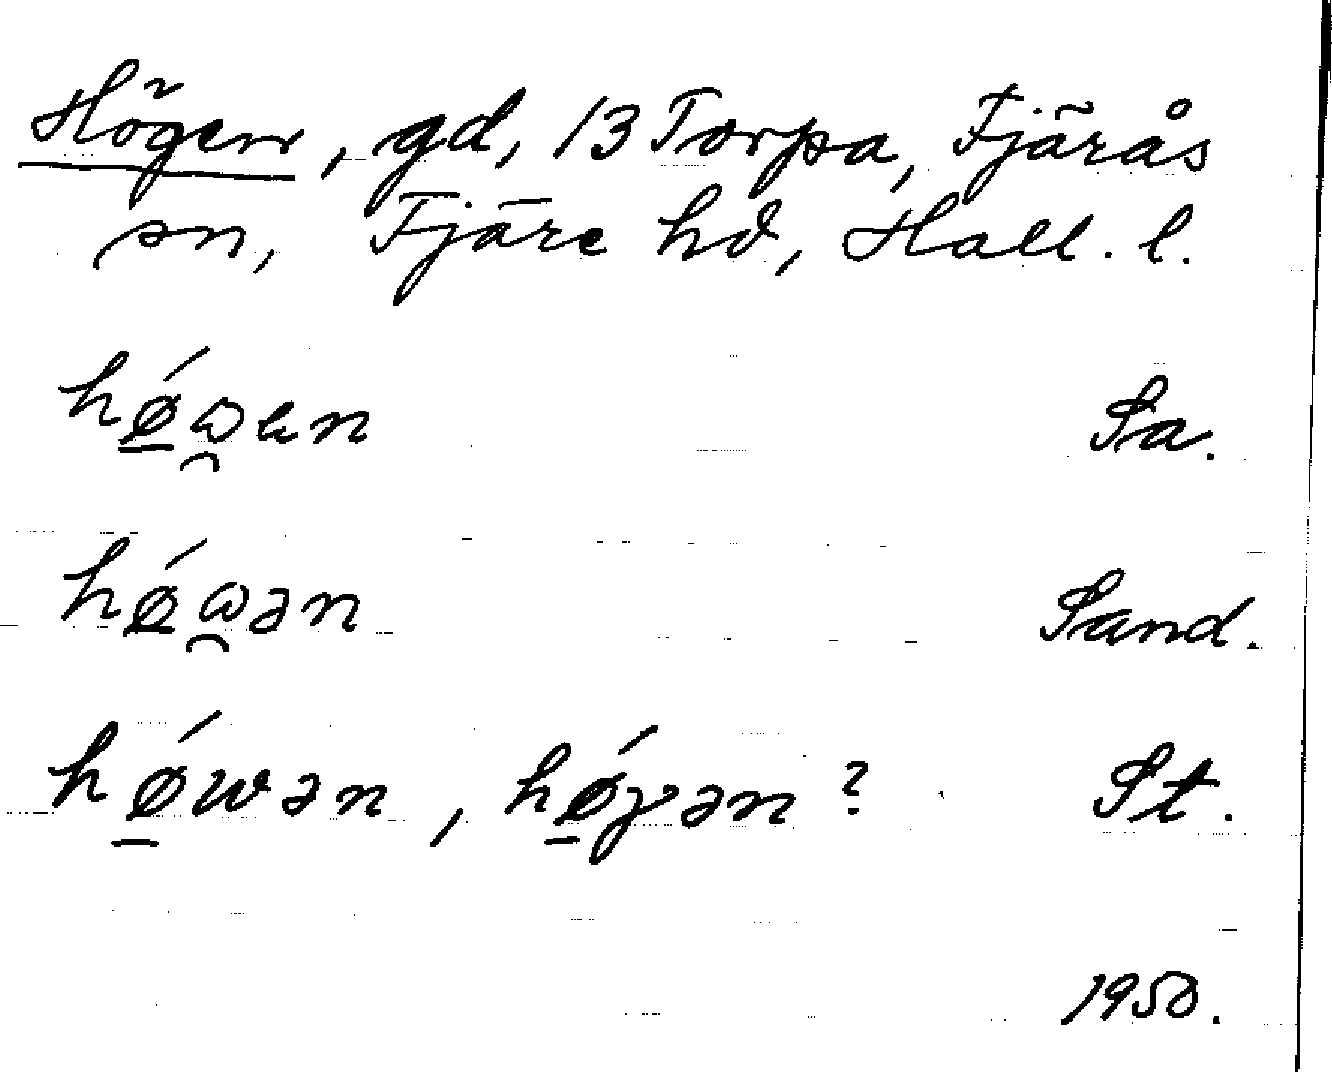 Högen, gd, 13 Torpa, Fjärås
sn, Fjäre hd, Hall. l.
hǿ̱ω̯en Sa.
hǿ̱ω̯ən Sand.
hǿ̱wən, hǿ̱γən? St.
1950.